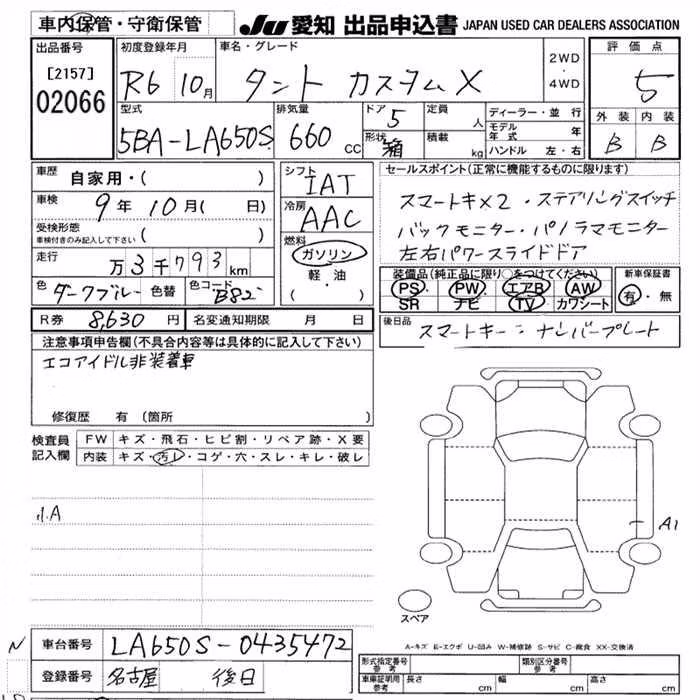 車内保管・守衛保管
JU 愛知 出品申込書 JAPAN USED CAR DEALERS ASSOCIATION
出品番号
[2157]
02066
初度登録年月
R6 10月
車名・グレード
タント カスタムX
2WD
・
4WD
評価点
5
外装 内装
B B
型式
5BA-LA650S
排気量
660 CC
ドア
5
形状
箱
定員
人
積載
kg
ディーラー・並行
モデル年式 年
ハンドル 左・右
車歴
自家用・( )
車検
9年 10月( 日)
受検形態
車検付きのみ記入して下さい ( )
走行
万 3千793 km
色
ダークブルー
色替
色コード
B82
シフト
IAT
冷房
AAC
燃料
ガソリン
・
軽・油
( )
セールスポイント(正常に機能するものに限ります)
スマートキ×2・ステアリングスイッチ
バックモニター・パノラマモニター
左右パワースライドドア
装備品(純正品に限り○をつけてください)
PS PW エアB AW
SR ナビ TV カワシート
新車保証書
有・無
R券 8,630 円
名変通知期限 月 日
後日品
スマートキー ナンバープレート
注意事項申告欄(不具合内容等は具体的に記入して下さい)
エコアイドル非装着車
修復歴 有(箇所 )
検査員記入欄
FW キズ・飛石・ヒビ割・リペア跡・X要
内装 キズ・汚レ・コゲ・穴・スレ・キレ・破レ
小A
A1
スペア
A-キズ E-エクボ U-凹み W-補修跡 S-サビ C-腐食 XX-交換済
N
車台番号 LA650S-0435472
登録番号 名古屋 後日
形式指定番号
参考
類別区分番号
参考
車庫証明用
参考
長さ cm
幅 cm
高さ cm